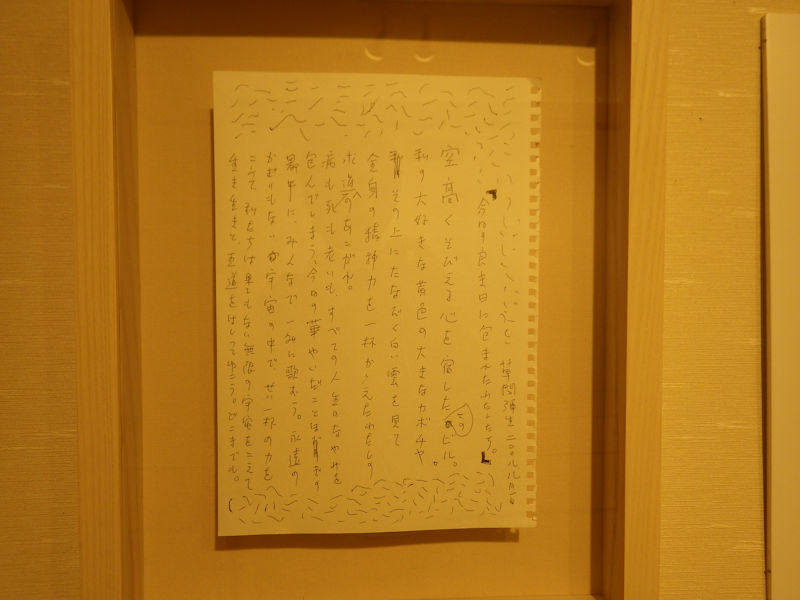 草間彌生 二〇〇八 八月一日
「今日の良き日に包まれたわたしたち。」
空高くそびえる心を宿したこのビル。
私の大好きな黄色の大きなカボチャ。
その上にたなびく白い雲を見て
全身の精神力を一杯かかえたわたしの
永遠のあこがれ。
病も死も老いも、すべての人生のなやみを
包んでしまう、今日の華やいだことほぎの
最中に、みんなで一緒に歌おう。永遠の
かぎりもない宇宙の中で、せい一杯の力を
こめて、私たちは果てもない無限の宇宙をこえて
生き生きと、 道をはしってゆこう。どこまでも。